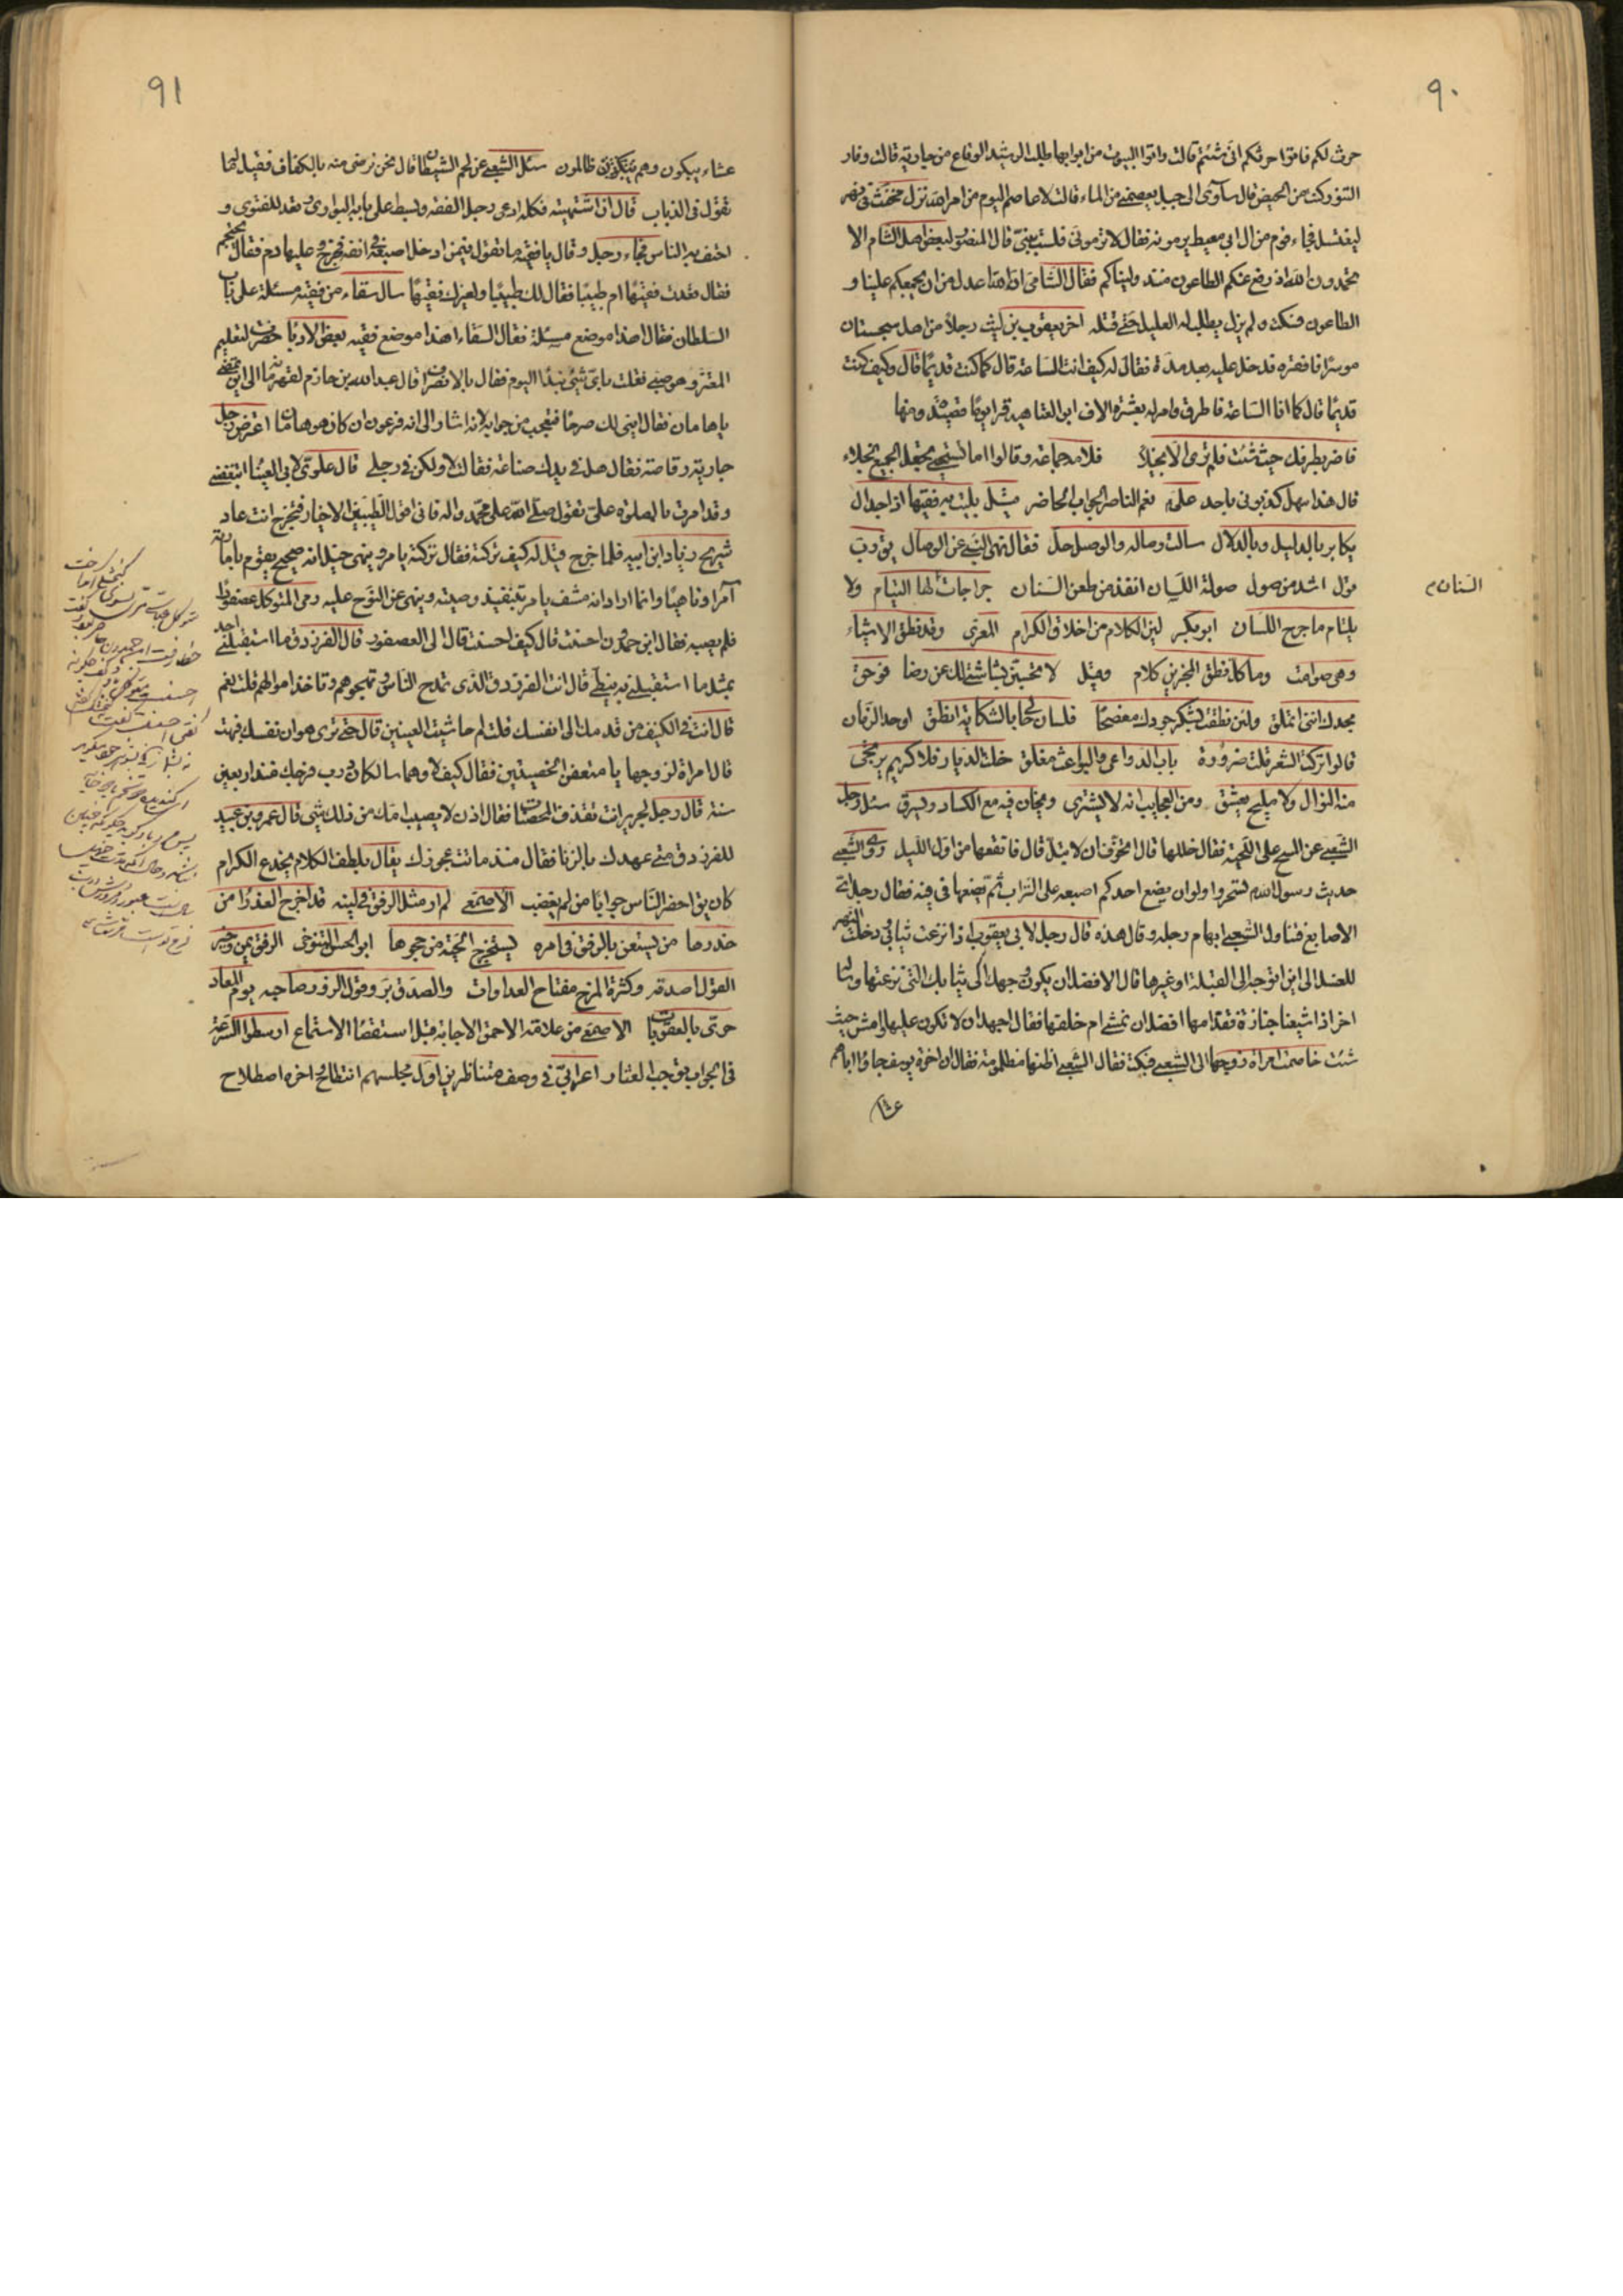 ٩٠
حرث لكم فاتوا حرثكم انى شئتم قالت واتوا البيوت من ابوابها طلب الرشيد الوقاع من جاريته قالت وفار
التنور وكنت من الحيض قال ساوى الى جبل يعصمنى من الماء قالت لا عاصم اليوم من امر الله نزل مخنث فى نهر
ليغتسل فجاء قوم من ال ابى معيط يرمونه فقال لا ترمونى فلست بنبى قال المنصور لبعض اهل الشام الا
تحمدون الله اذ رفع عنكم الطاعون منذ وليناكم فقال الشامى ان الله اعدل من ان يجمعكم علينا و
الطاعون فسكت ولم يزل يطلب له العليل حتى قتله اخر يعقوب بن ليث رجلا من اهل سجستان
موسرا فافقره فدخل عليه بعد مدة فقال له كيف انت الساعة قال كما كنت قديما قال وكيف كنت
قديما قال كما انا الساعة فاطرق وامر له بعشرة الاف ابن العتاهية قرا يوما قصيدة ومنها
فاضرب بطرفك حيث شئت فلم ترى الا بخيلا فلامه جماعة وقالوا اما تستحى تجعل الجميع بخلاء
قال هذا سهل كذبونى باحد على نعم الناصر الجواب الحاضر مثل بليت به فقيها اذا جدال
يكابر بالدليل وبالدلال سالت وصاله والوصل حل فقال نهى النبى عن الوصال يق رب
قول اشد من صول صولة اللسان انفذ من طعن السنان جراحات لها التيام ولا
السنان
يلتام ما جرح اللسان ابو بكر لين الكلام من اخلاق الكرام المعرى وقد نطق الاشياء
وهى صوامت وما كل نطق المخبرين كلام وقيل لا تحسبن بشاشتى لك عن رضا فوحق
مجدك اننى اتملق ولئن نطقت بشكر جودك مفصحا فلسان حالى بالشكاية انطق اوحد الزمان
قالوا تركت الشعر قلت ضرورة باب الدواعى والبواعث مغلق خلت الديار فلا كريم يرتجى
منه النوال ولا مليح يعشق ومن العجايب انه لا يشترى ويخان فيه مع الكساد ويسرق سئل رجل
الشعبى عن المسح على اللحية فقال خللها قال اتخوف ان لا تبتل قال فانقعها من اول الليل روى الشعبى
حديث رسول الله تسحروا ولو ان يضع احدكم اصبعه على التراب ثم يضعها فى فيه فقال رجل اى
الاصابع فتناول الشعبى ابهام رجله وقال هذه قال رجل لابى يعقوب اذا نزعت ثيابى ودخلت النهر
للغسل الى اين اتوجه الى القبلة او غيرها قال الافضل ان يكون وجهك الى ثيابك التى نزعتها وساله
اخر اذا شيعنا جنازة فقدامها افضل ان نمشى ام خلفها فقال اجهد ان لا تكون عليها وامش حيث
شئت خاصمت امراة زوجها الى الشعبى فبكت فقال الشعبى اظنها مظلومة فقال ان اخوة يوسف جاؤا اباهم
عشاء
٩١
عشاء يبكون وهم ظالمون سئل الشعبى عن لحم الشيطان قال نحن نرضى منه بالكفاف فقيل له ما
تقول فى الذباب قال ان اشتهيته فكله ادعى رجل الفقه وبسط على بابه البوارى وقعد للفتوى و
احتف به الناس فجاء رجل وقال يا فقيه ما تقول فيمن ادخل اصبعه فى انفه فخرج عليها دم فقال يحتجم
فقال قعدت فقيها ام طبيبا فقال لك طبيبا ولغيرك فقيها سال سقاء من فقيه مسئلة على باب
السلطان فقال اهذا موضع مسئلة فقال السقاء اهذا موضع فقيه بعض الادبا حضرت لتعليم
المعتز وهو صبى فقلت باى شئ نبدا اليوم فقال بالانصراف قال عبد الله بن حازم لقهرمانه الى اين تمضى
يا هامان فقال ابنى لك صرحا فتعجب من جوابه لانه اشار الى انه فرعون ان كان هو هامان اعترض رجل
جارية رقاصة فقال هل فى يدك صناعة فقالت لا ولكن فى رجلى قال علوى لابى العينا اتبغضنى
وقد امرت بالصلوة على تقول صلى الله على محمد واله قال انى اقول الطيبين الاخيار فتخرج انت عاد
شريح زياد ابن ابيه فلما خرج قيل له كيف تركته فقال تركته يامر وينهى خيل انه صحيح يقوم
آمرا وناهيا وانما اراد انه مشف يامر بتنفيذ وصيته وينهى عن النوح عليه رمى المتوكل عصفورا
فلم يصبه فقال ابن حمدون احسنت قال كيف احسنت قال الى العصفور قال الفرزدق ما استقبلنى احد
بمثل ما استقبلنى به نبطى قال انت الفرزدق الذى تمدح الناس وتهجوهم وتاخذ اموالهم قلت نعم
قال انت فى الكنيف من قدمك الى انفسك قلت لم حاشيت العينين قال حتى ترى هوان نفسك فبهت
قال امراة لزوجها يا منعفن الخصيتين فقال كيف لا وهما سالكان درب فرجك منذ اربعين
سنة قال رجل لجرير انت تقذف المحصنات فقال اذن لا يصيب امك من ذلك شئ قال عمرو بن عبيد
للفرزدق متى عهدك بالزنا فقال منذ ماتت عجوزك يقال بلطف الكلام يخدع الكرام
كان يق احضر الناس جوابا من لم يغضب الاصمعى لم ار مثل الرفق فى لينه قد اخرج العذرا من
خدرها من يستعن بالرفق فى امره يستخرج الحية من جحرها ابو الحسن التنوخى الرفق يمن وخير
القول اصدقه وكثرة المزح مفتاح العداوات والصدق بر وقول الزور صاحبه يوم المعاد
حرى بالعقوبات الاصمعى من علامة الاحمق الاجابة قبل استقصا الاستماع ارسطو السرعة
فى الجواب توجب العثار اعرابى فى وصف متناظرين اول مجلسهم انتطاح اخره اصطلاح